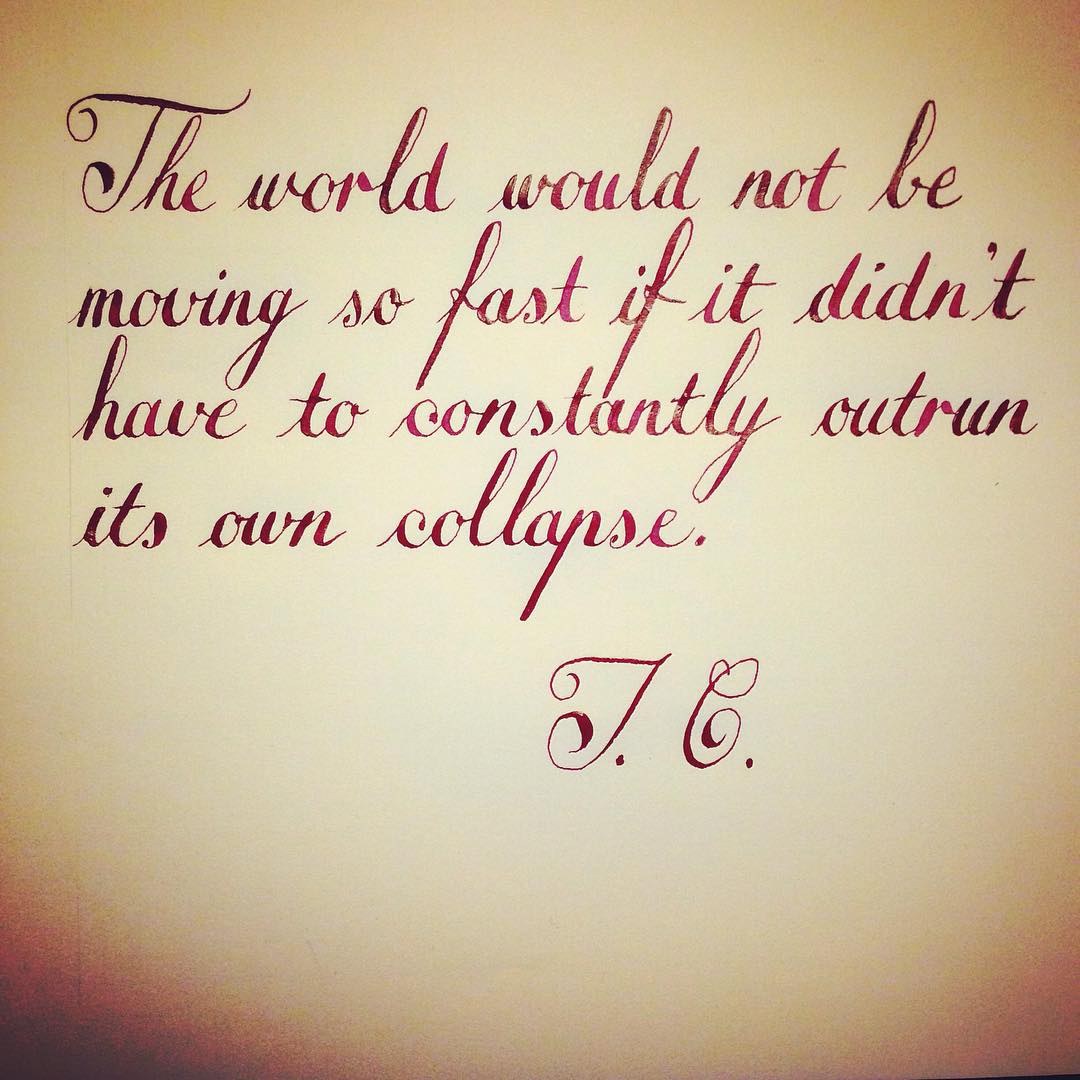 The world would not be
moving so fast if it didn't
have to constantly outrun
its own collapse.
T. C.